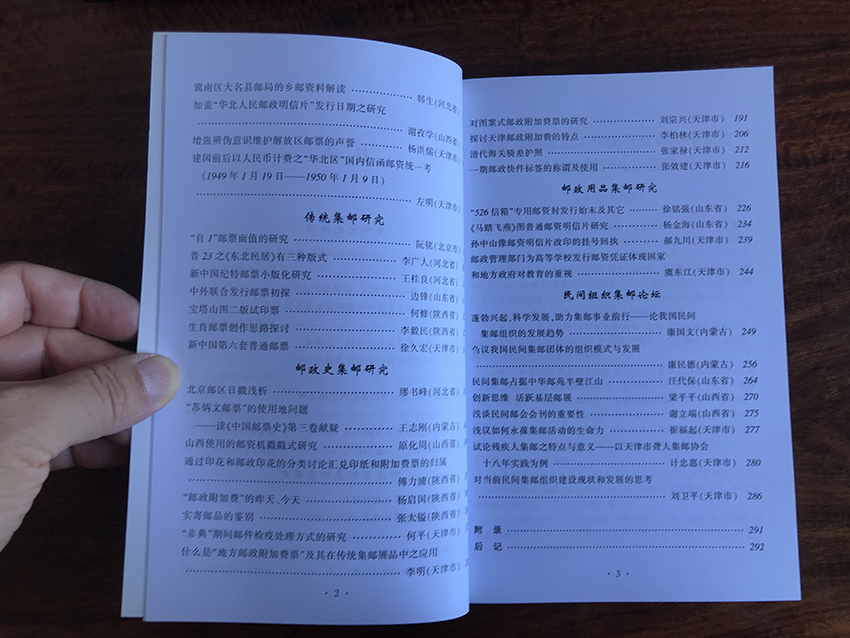 冀南区大名县邮局的乡邮资料解读 ················ 韩生(河北省)
加盖“华北人民邮政明信片”发行日期之研究
················ 谢孜学(山西省)
增强辨伪意识维护解放区邮票的声誉 ················ 杨洪儒(天津市)
建国前后以人民币计费之“华北区”国内信函邮资统一考
(1949年1月19日——1950年1月9日)
················ 左明(天津市)
传统集邮研究
“自1”邮票面值的研究 ················ 阮铭(北京市)
普23之《东北民居》有三种版式 ················ 李广人(河北省)
新中国纪特邮票小版式研究 ················ 王桂良(河北省)
中外联合发行邮票初探 ················ 边锋(山东省)
宝塔山图二版试印票 ················ 何修(陕西省)
生肖邮票创作思路探讨 ················ 李毅民(陕西省)
新中国第六套普通邮票 ················ 徐久宏(天津市)
邮政史集邮研究
北京邮区日戳浅析 ················ 缪书峰(河北省)
“苏炳文邮票”的使用地问题
——读《中国邮票史》第三卷献疑 ················ 王志刚(内蒙古)
山西使用的邮资机戳戳式研究 ················ 原化周(山西省)
通过印花和邮政印花的分类讨论汇兑印纸和附加费票的归属
················ 傅力浦(陕西省)
“邮政附加费”的昨天、今天 ················ 杨启国(陕西省)
实寄邮品的鉴别 ················ 张太镒(陕西省)
“非典”期间邮件检疫处理方式的研究 ················ 何平(天津市)
什么是“地方邮政附加费票”及其在传统集邮展品中之应用
················ 李明(天津市)
· 2 ·
对图案式邮政附加费票的研究 ················ 刘宗兴(天津市) 191
探讨天津邮政附加费的特点 ················ 李柏林(天津市) 206
清代海关骑差护照 ················ 张家禄(天津市) 212
一期邮政快件标签的称谓及使用 ················ 张效建(天津市) 216
邮政用品集邮研究
“526信箱”专用邮资封发行始末及其它 ················ 徐铭强(山东省) 226
《马踏飞燕》图普通邮资明信片研究 ················ 杨金海(山东省) 234
孙中山像邮资明信片改印的挂号回执 ················ 郝九川(天津市) 239
邮政管理部门为高等学校发行邮资凭证体现国家
和地方政府对教育的重视 ················ 窦东江(天津市) 244
民间组织集邮论坛
蓬勃兴起,科学发展,助力集邮事业前行——论我国民间
集邮组织的发展趋势 ················ 康国文(内蒙古) 249
刍议我国民间集邮团体的组织模式与发展
················ 康民德(内蒙古) 256
民间集邮占据中华邮苑半壁江山 ················ 汪代保(山东省) 264
创新思维 活跃基层邮展 ················ 梁平平(山西省) 270
浅谈民间邮会会刊的重要性 ················ 谢立端(山西省) 275
浅议如何永葆集邮活动的生命力 ················ 崔福起(天津市) 277
试论残疾人集邮之特点与意义——以天津市聋人集邮协会
十八年实践为例 ················ 计忠惠(天津市) 280
对当前民间集邮组织建设现状和发展的思考
················ 刘卫平(天津市) 286
附 录 ················ 291
后 记 ················ 292
· 3 ·